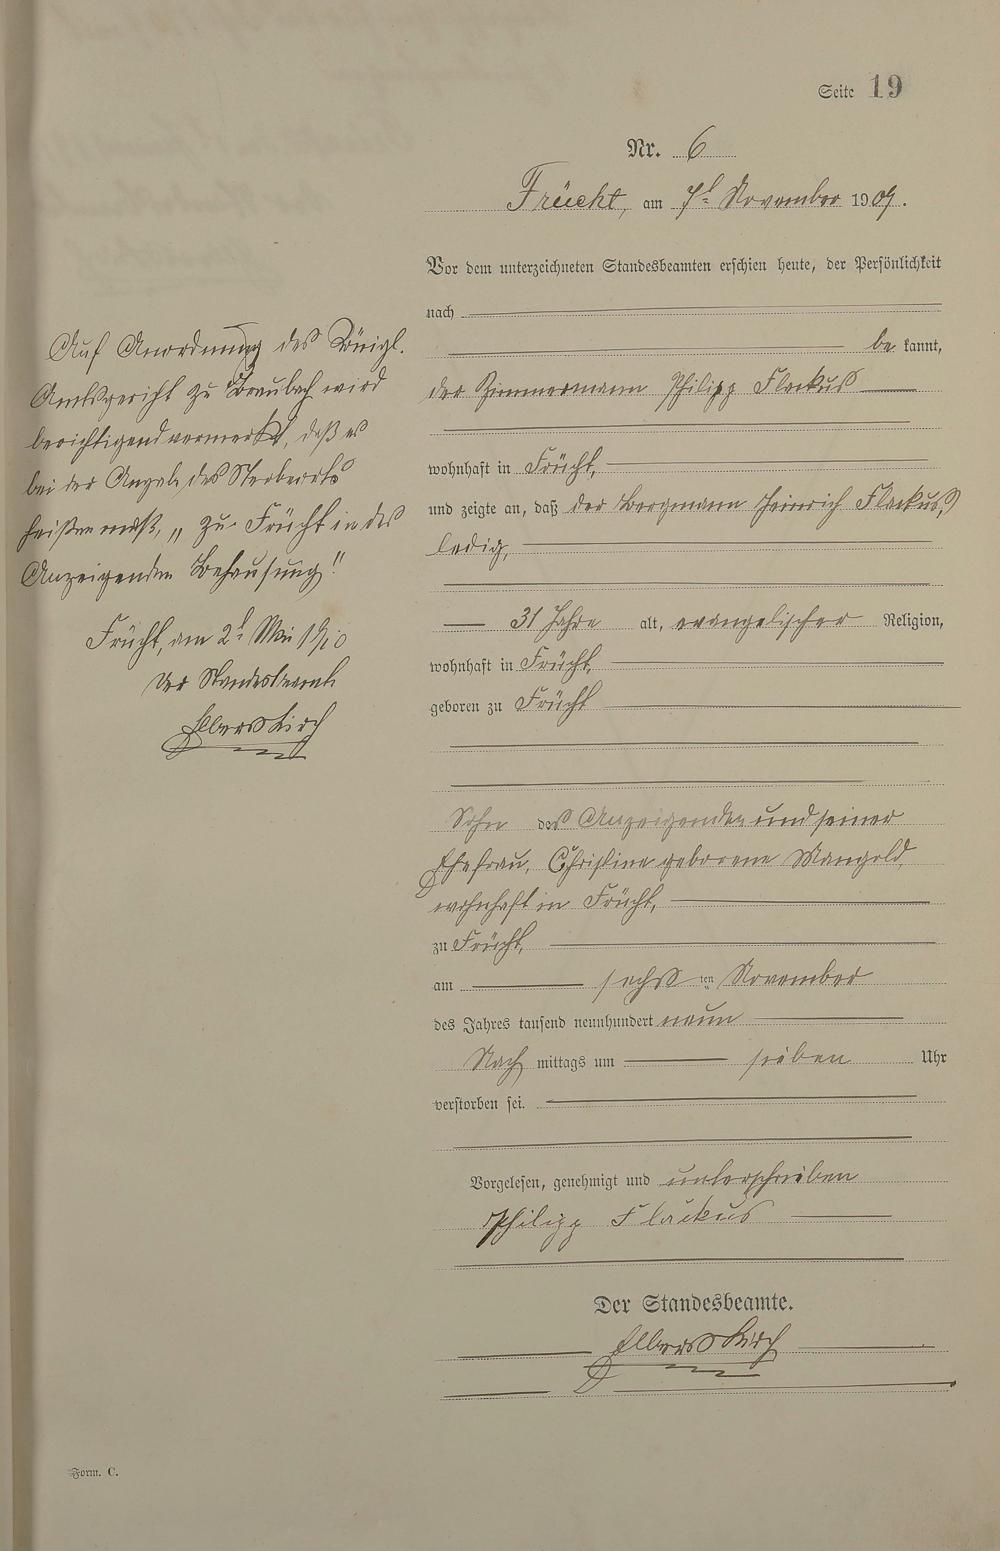 Seite 19
Nr. 6
Frücht, am 7t November 1909.
Vor dem unterzeichneten Standesbeamten erschien heute, der Persönlichkeit
nach
be kannt,
der Zimmermann Philipp Flackus
wohnhaft in Frücht,
und zeigte an, daß der Bergmann Heinrich Flackus,
ledig,
31 Jahre alt, evangelischer Religion,
wohnhaft in Frücht,
geboren zu Frücht
Sohn des Anzeigenden und seiner
Ehefrau, Christine geborene Mangold,
wohnhaft in Frücht,
zu Frücht,
am sechs ten November
des Jahres tausend neunhundert neun
Nach mittags um sieben Uhr
verstorben sei.
Vorgelesen, genehmigt und unterschrieben
Philipp Flackus
Der Standesbeamte.
Elberskirch
Auf Anordnung des Königl.
Amtsgericht zu Braubach wird
berichtigend vermerkt, daß es
bei der Angabe des Sterbeorts
heißen muß, „zu Frücht in des
Anzeigenden Behausung!"
Frücht, am 2t Mai 1910
Der Standesbeamte
Elberskirch
Form. C.